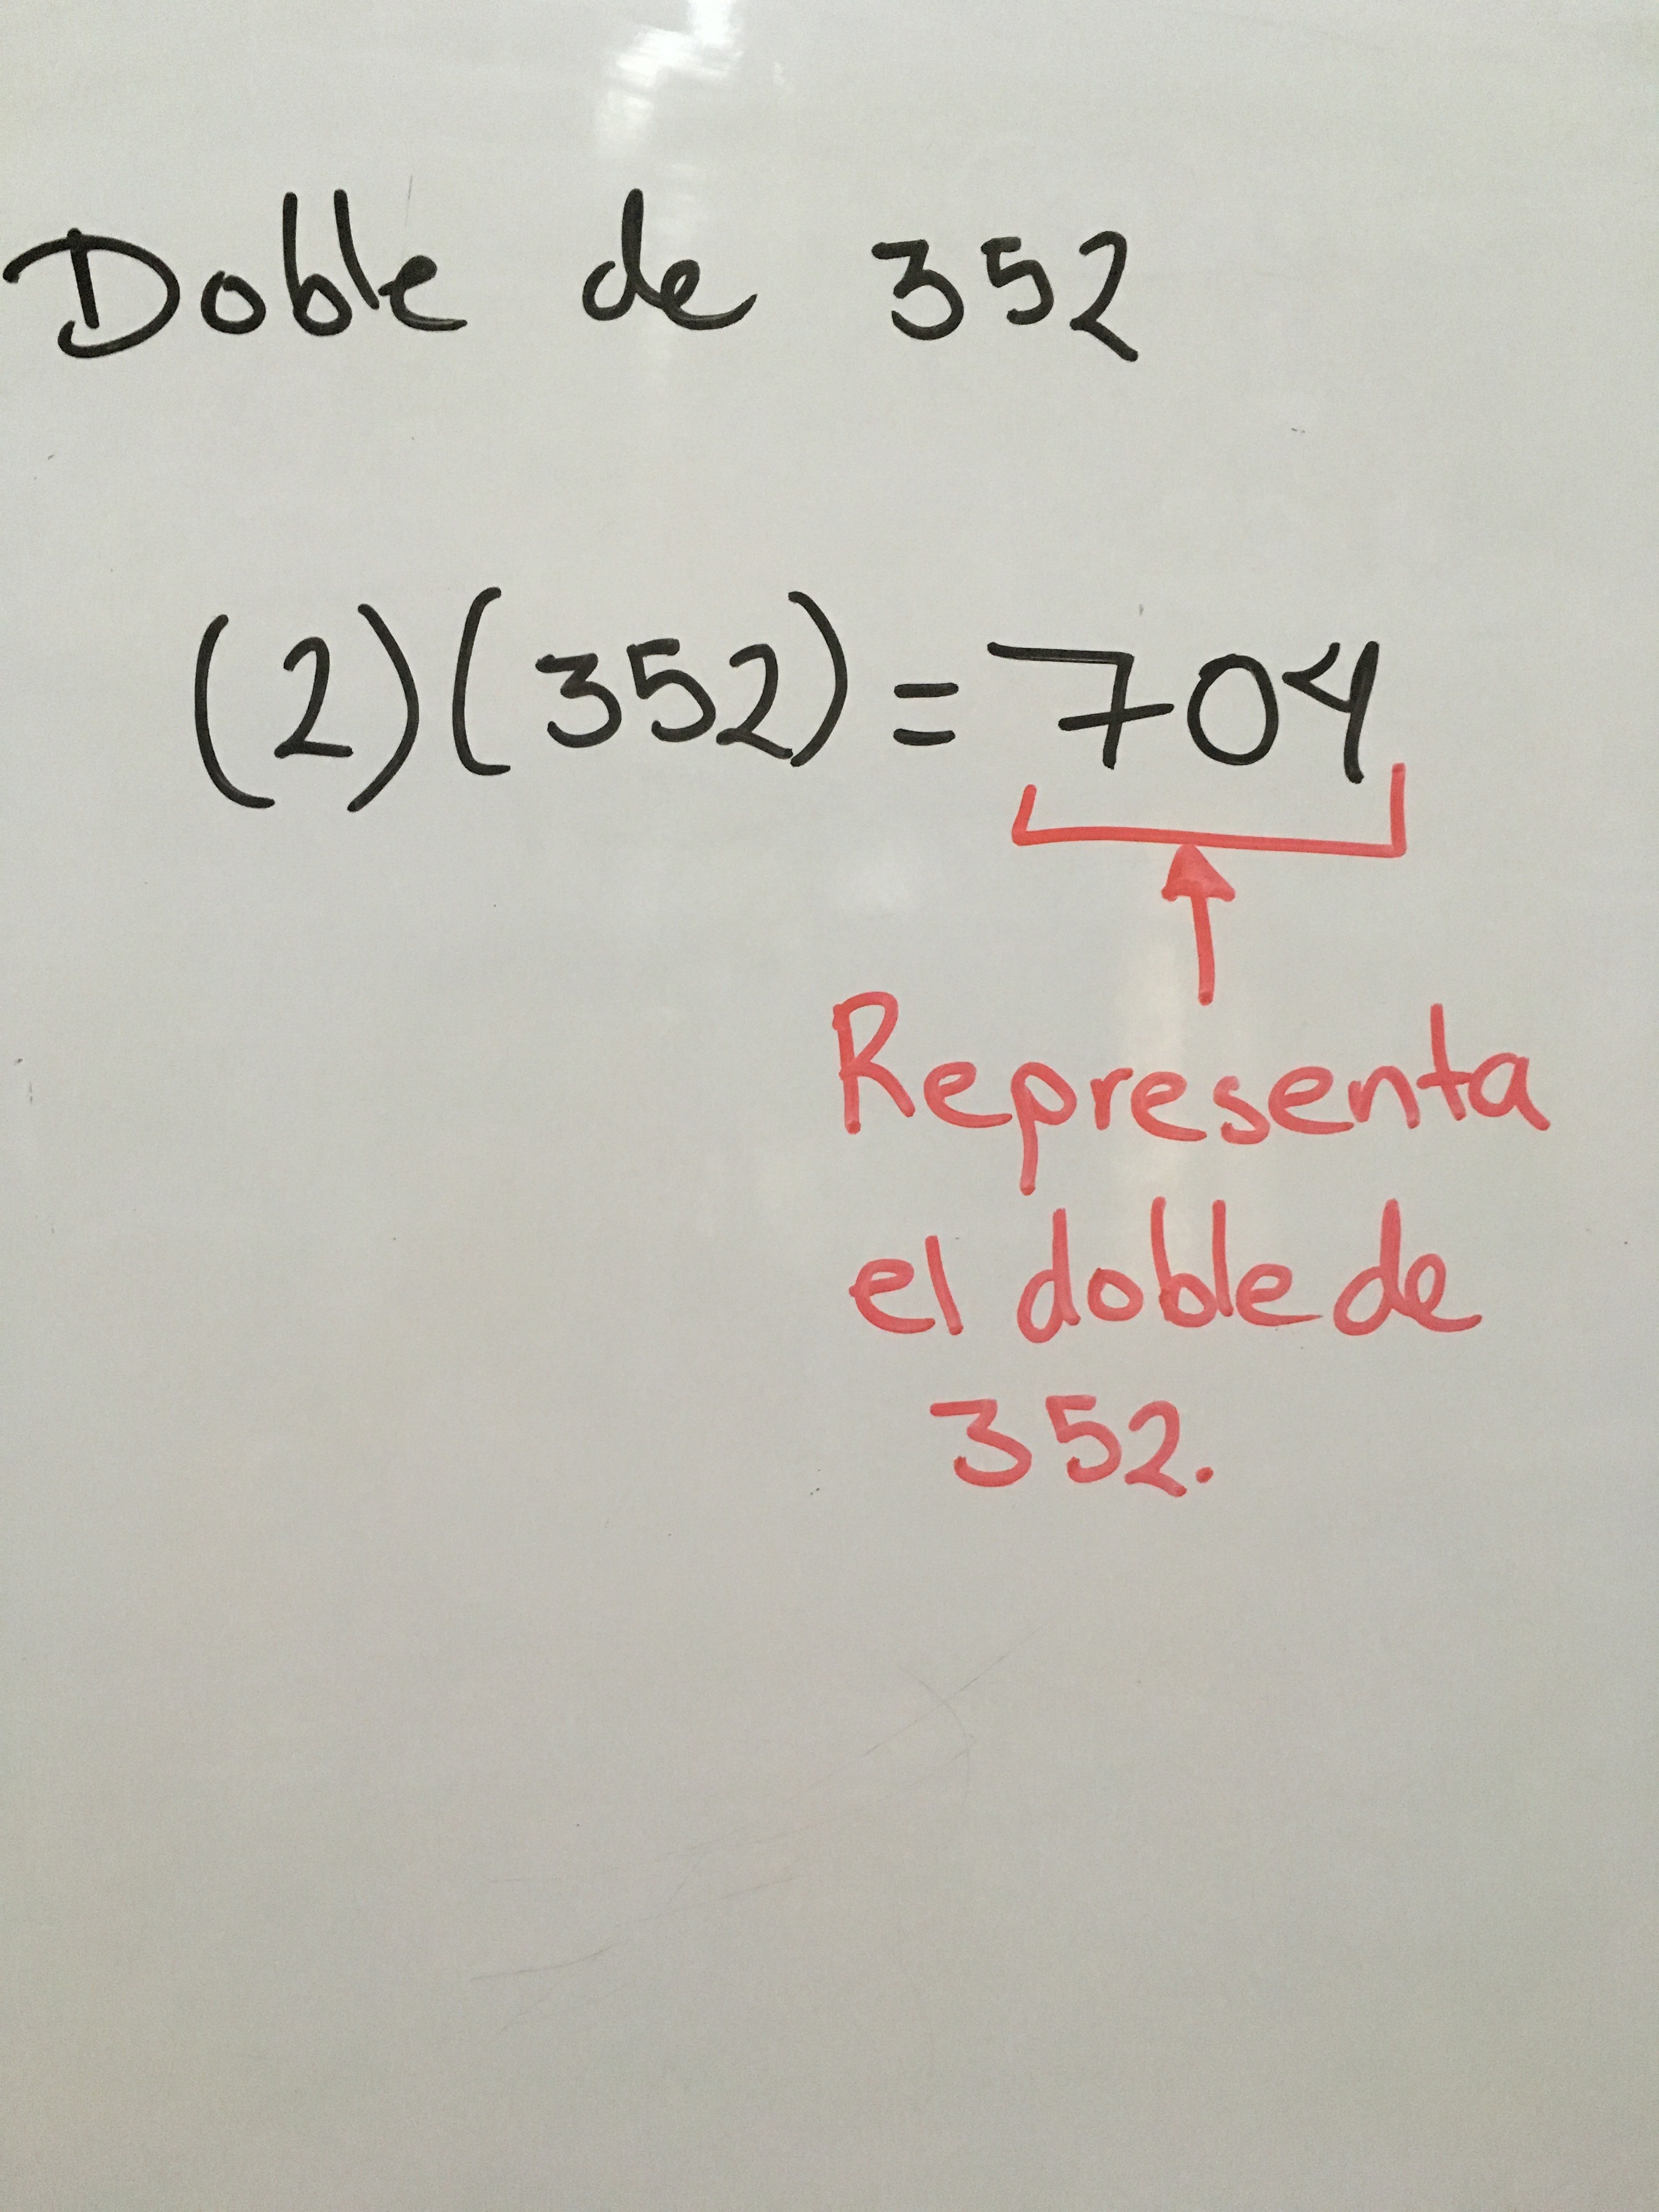 Doble de 352
(2)(352)=704
Representa
el doble de
352.